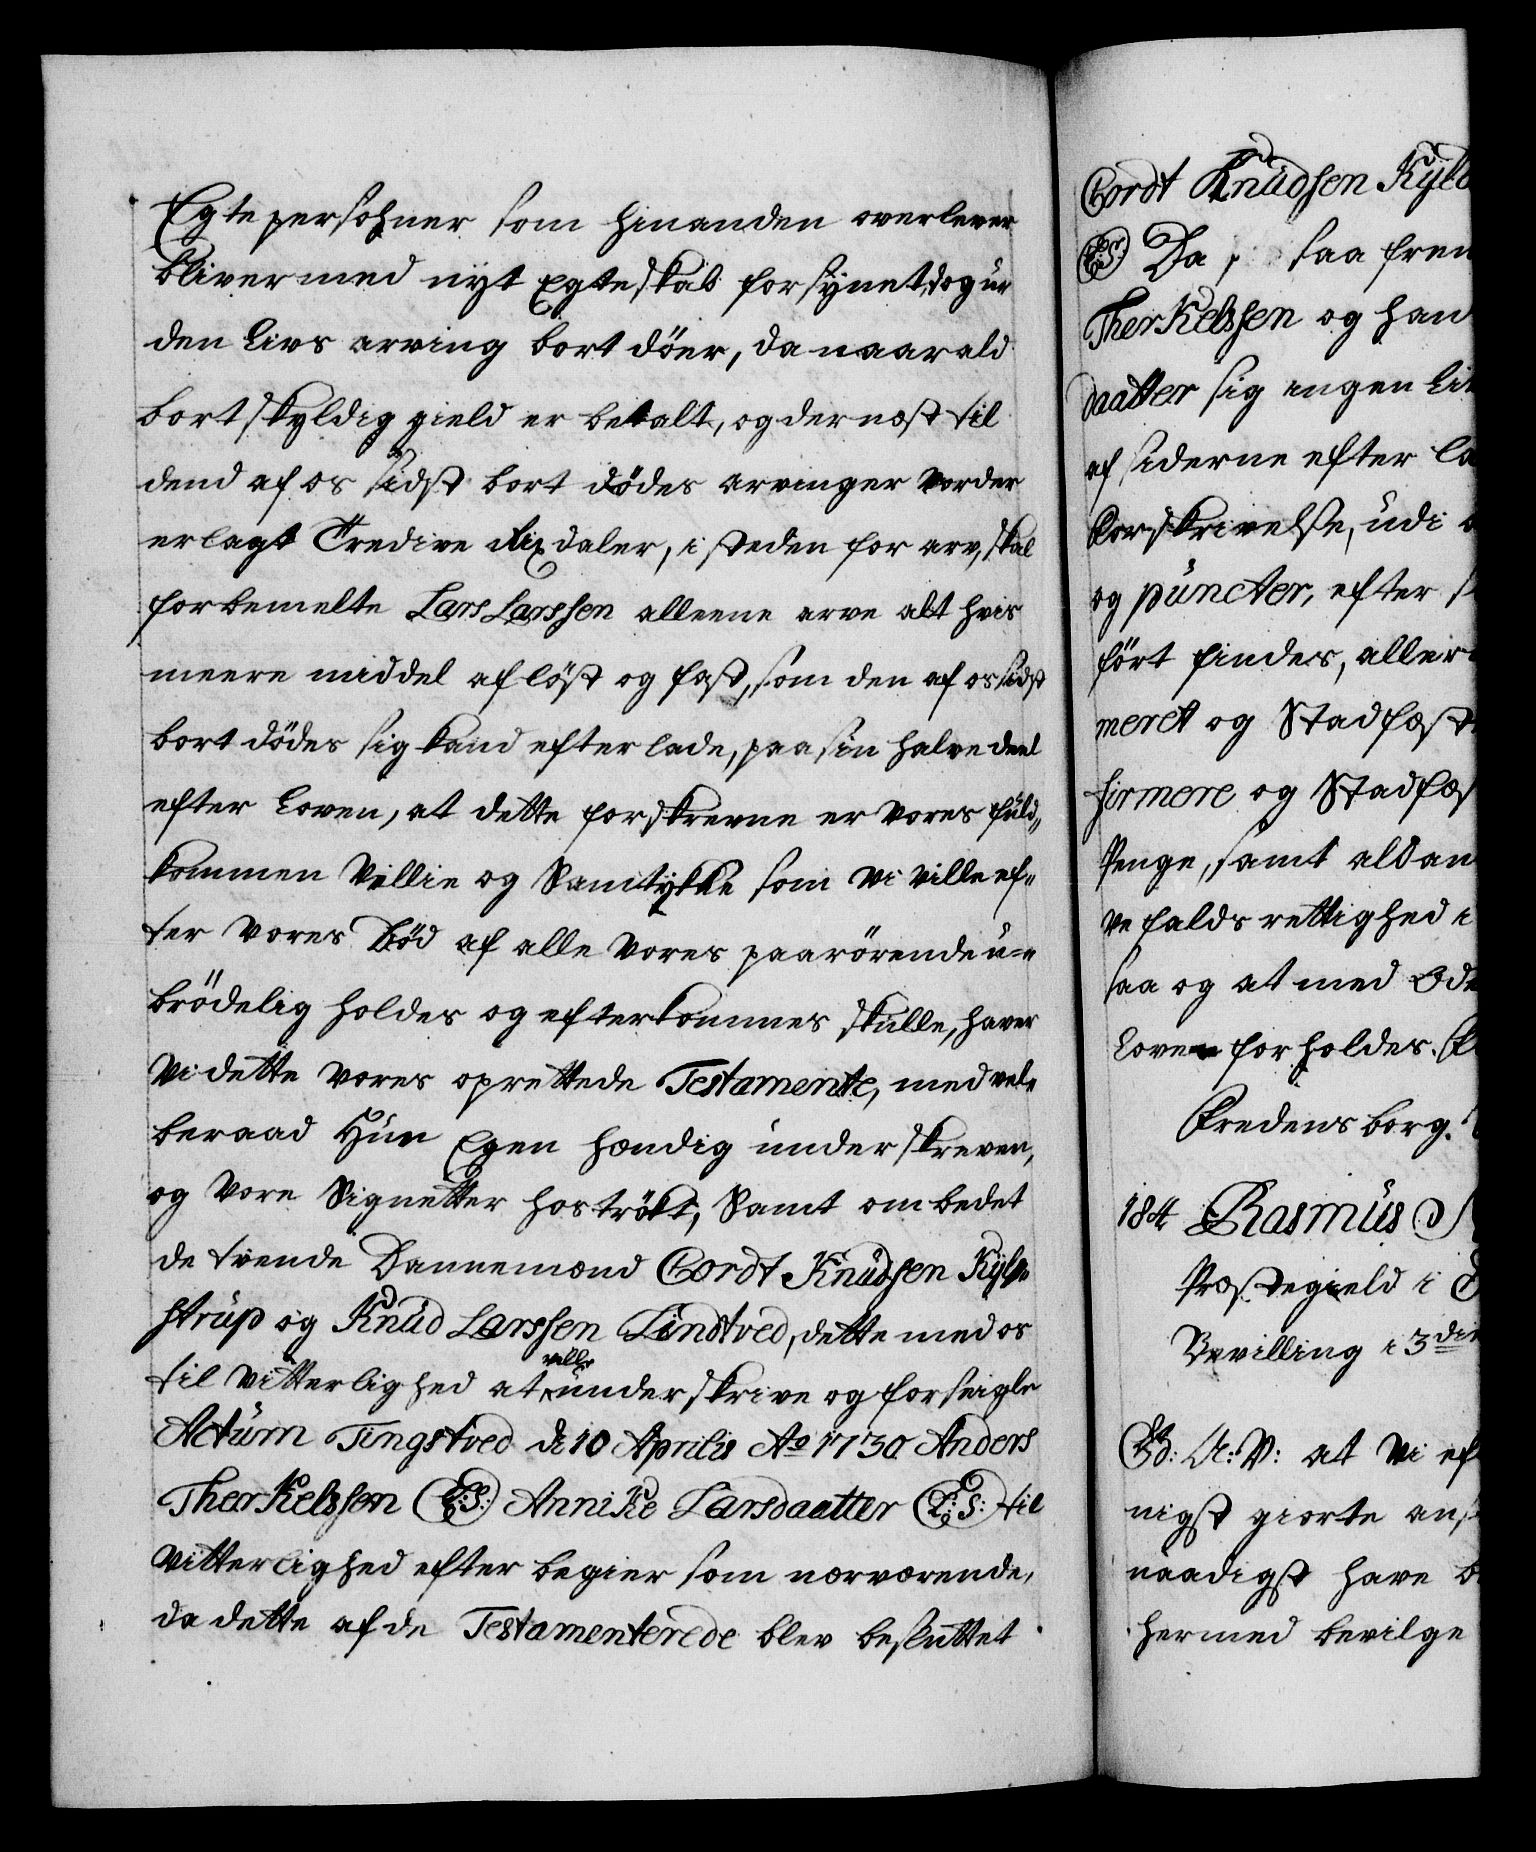 Egte persohner som hinanden overlever
bliver med nyt Egteskab forsynet, dog u-
den Livs arving bort döer, da naar ald
bortskyldig gield er betalt, og der næst til
dend af os sidst bort dödes arvinger vorder
erlagt Tredive Rixdaler, i steden for arv, skal
forbemelte Lars Larssen alleene arve alt hvis
meere middel af löst og fast, som den af os sidst
bort dödes sig kand efterlade, paa sin halve deel
efter Loven, at dette forskrevne er vores fuld„
kommen Villie og Samtykke som vi ville ef„
ter vores Död af alle vores paarörende u=
brödelig holdes og efterkommes skulle, haver
vi dette vores oprettede Testamente, med vel„
beraad Hun Egen hændig underskreven,
og vore Signetter hos trökt, Samt ombedet
de tvende Dannemænd Cordt Knudsen Kyl„
strup og Knud Larssen Lindtved, dette med os
til vitterlighed at ville underskrive og forseigle
Actum Tingstved d: 10 Aprilis Ao 1730 Anders
Therkelssen (L:S:) Annike Larsdaatter (L:S:) til
vitterlighed efter begier som nærværende,
da dette af de Testamenterede blev besluttet
Cordt Knudsen Kyl
(L:S:) Da saa frem
Therkelssen og han
daatter sig ingen Li
af siderne efter la
forskrivelse, udi
og puncter, efter
fört findes, aller
meret og Stadfæst
firmere og Stadfæs
Penge, samt ald an
ve falds rettighed i
saa og at med Ode
Loven forholdes. Sk
Fredensborg.
184 Rasmus
Præstegield i
Bevilling i 3die
G: A: V: at Vi ef
nigst giorte ans
naadigst have b
hermed bevilge